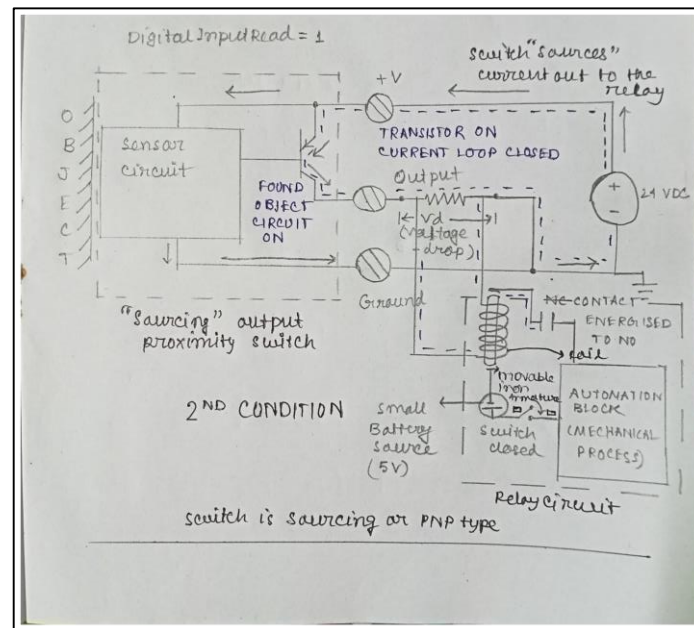 Digital Input Read = 1
switch "sources"
current out to the
relay
+V
O
B
J
E
C
T
sensar
circuit
TRANSISTOR ON
CURRENT LOOP CLOSED
FOUND
OBJECT
CIRCUIT
ON
Output
Vd
(valtage
drop)
+
-
24 VDC
Ground
"Sourcing" output
proximity switch
NC CONTACT
ENERGISED
TO NO
movable
iron
Armature
2ND CONDITION
small
Battery
source
(5V)
switch
closed
AUTOMATION
BLOCK
(MECHANICAL
PROCESS)
Relay Circuit
switch is sourcing or PNP type